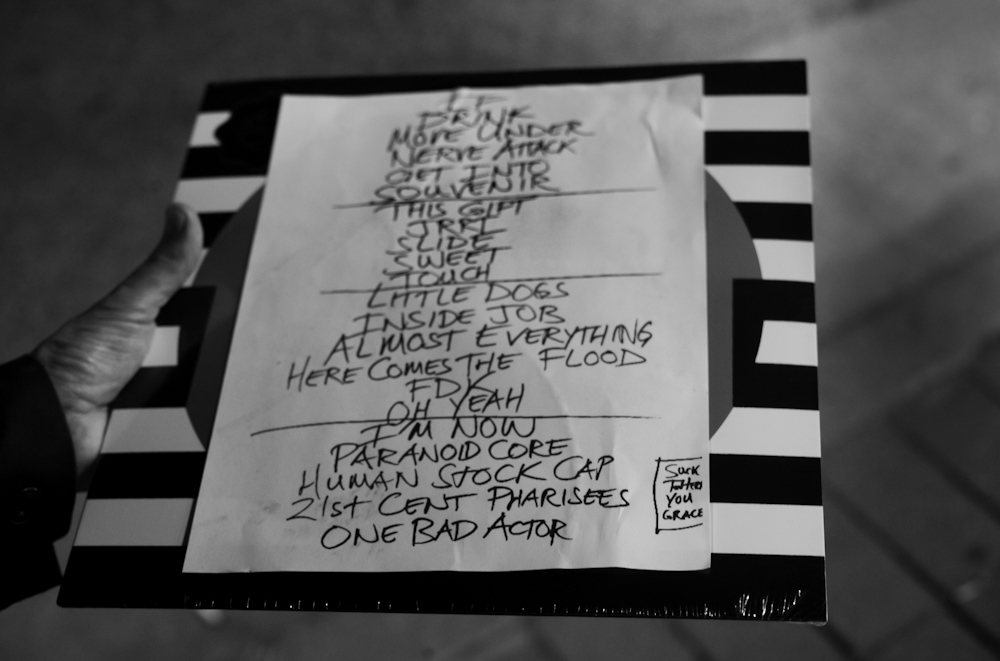 DRINK
MOVE UNDER
NERVE ATTACK
GET INTO
SOUVENIR
THIS GIFT
JRRL
SLIDE
SWEET
TOUCH
LITTLE DOGS
INSIDE JOB
ALMOST EVERYTHING
HERE COMES THE FLOOD
FDK
OH YEAH
I'M NOW
PARANOID CORE
HUMAN STOCK CAP
21st CENT PHARISEES
ONE BAD ACTOR
SUCK
YOU
GRACE